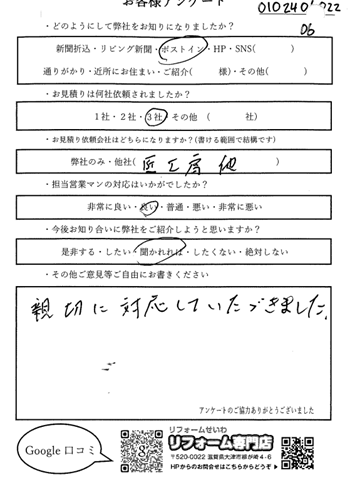 お客様アンケート
・どのようにして弊社をお知りになりましたか？
06
新聞折込・リビング新聞・ポストイン・HP・SNS(　　　　)
通りがかり・近所にお住まい・ご紹介(　　　様)・その他(　　　)
・お見積りは何社依頼されましたか？
1社・2社・3社 その他（　　　社）
・お見積り依頼会社はどちらになりますか？(書ける範囲で結構です)
弊社のみ・他社(　　　　)
・担当営業マンの対応はいかがでしたか？
非常に良い・良い・普通・悪い・非常に悪い
・今後お知り合いに弊社をご紹介しようと思いますか？
是非する・したい・聞かれれば・したくない・絶対しない
・その他ご意見等ご自由にお書きください
親切に対応していただきました。
アンケートのご協力ありがとうございました
Google 口コミ
リフォームせいわ
リフォーム専門店
〒520-0022 滋賀県大津市柳が崎4-6
HPからのお問合せはこちらからどうぞ